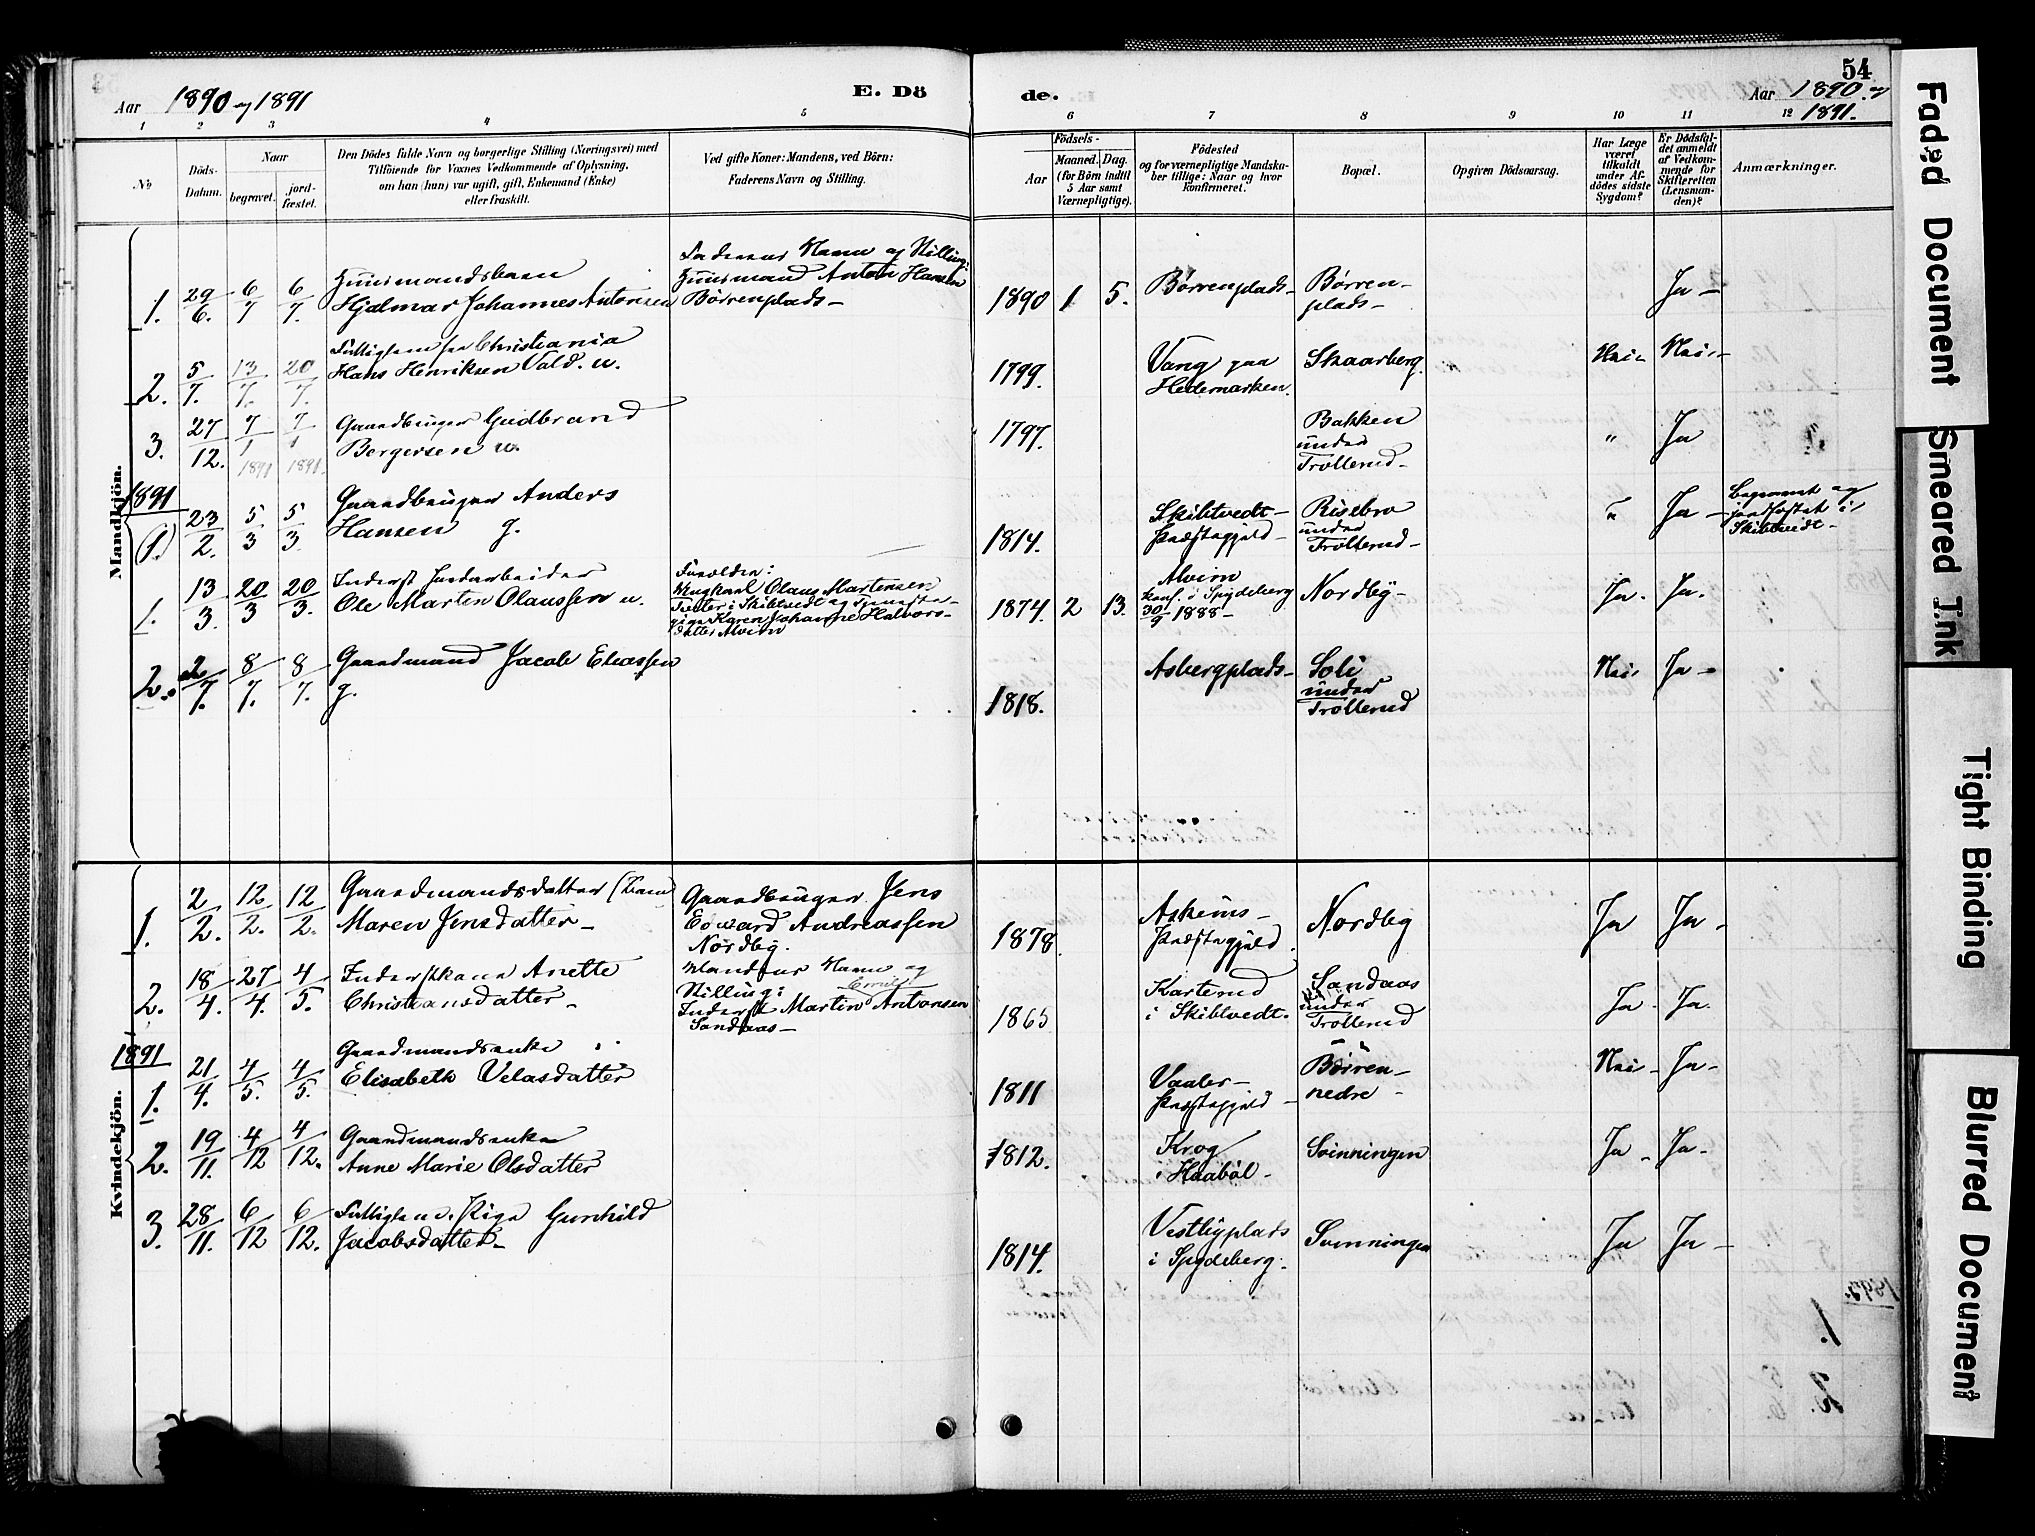 54
Aar 1890 og 1891
E. Dö
de.
Aar 1890 og
1891.
1 2 3 4 5 6 7 8 9 10 11 12
No
Döds-
Datum.
Naar
begravet.
jord-
fæstet.
Den Dödes fulde Navn og borgerlige Stilling (Næringsvei) med
Tilföiende for Voxnes Vedkommende af Oplysning,
om han (hun) var ugift, gift, Enkemand (Enke)
eller fraskilt.
Ved gifte Koner: Mandens, ved Börn:
Faderens Navn og Stilling.
Födsels-
Aar
Maaned.
Dag.
(for Börn indtil
5 Aar samt
Værnepligtige).
Födested
og for værnepligtige Mandska-
ber tillige: Naar og hvor
konfirmeret.
Bopæl.
Opgiven Dödsaarsag.
Har Læge
været
tilkaldt
under Af-
dödes sidste
Sygdom?
Er Dödsfal-
det anmeldt
af Vedkom-
mende for
Skifteretten
(Lensman-
den)?
Anmærkninger.
Mandkjön.
1. 29/6. 6/7 6/7.
Huusmandsbarn
Hjalmar Johannes Antonsen
Faderens Navn og Stilling:
Huusmand Anton Hansen
Börrenplads-
1890 1 5. Börrenplads- Börren-
plads-
Ja-
2. 5/7. 13/7. 20/7.
Fattiglem fra Christiania
Hans Henriksen Vald. u.
1799. Vang paa
Hedemarken.
Skaarberg. Nei- Nei-
3. 27/12. 7/1 7/1
1891 1891.
Gaardbruger Gudbrand
Bergersen u.
1797. Bakken
under
Tröllerud-
" Ja
1891
(1.) 23/2. 5/3 5/3.
Gaardbruger Anders
Hansen g.
1814. Skibtvedt-
Præstegjeld-
Risebro
under
Tröllerud-
" Ja-
Begravet og
jordfæstet i
Skibtvedt-
1. 13/3. 20/3 20/3.
Inderst Jordarbeider
Ole Martin Olaussen u.
Forældre:
Ungkarl Olaus Martensen
i Skibtvedt og
Karen Johanne Halvors-
datter Alvim
1874 2 13. Alvim
konf. i Spydeberg
30/9 1888-
Nordby- Ja. Ja.
2. 2/7. 8/7. 8/7.
Gaardmand Jacob Eliassen
g.
1818. Asbergplads- Soli
under
Tröllerud
Nei- Ja-
Kvindekjön.
1. 2/2. 12/2. 12/2.
Gaardmandsdatter (Barn)
Maren Jensdatter-
Gaardbruger Jens
Edvard Andreassen
Nordby.
1878. Askims-
Præstegjeld.
Nordby Ja Ja-
2. 18/4. 27/4. 4/5.
Inderstkone Anette
Christiansdatter-
Mandens Navn og
Stilling:
Inderst Martin Antonsen
Sandaas-
1865 Karterud
i Skibtvedt.
Sandaas
under
Tröllerud
Ja. Ja.
1891
1. 21/4. 4/5. 4/5.
Gaardmandsenke
Elisabeth Velasdatter
1811 Vaaler-
Præstegjeld-
Böiren-
nedre-
Nei- Ja-
2. 19/11. 4/12 4/12.
Gaardmandsenke
Anne Marie Olsdatter
1812. Krog
i Haaböl-
Svinningen Ja- Ja-
3. 28/11. 6/12 6/12.
Fattiglem. Pige Gunhild
Jacobsdatter-
1814. Vestbyplads
i Spydeberg.
Svinningen Ja Ja-
Faded Document
Smeared Ink
Tight Binding
Blurred Document